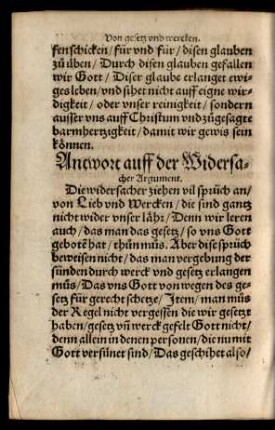 Von gesetz vnd wercken.
fen schicken / für vnd für / disen glauben
zů üben / Durch disen glauben gefallen
wir Gott / Diser glaube erlanget ewi-
ges leben / vnd sihet nicht auff eigne wir-
digkeit / oder vnser reinigkeit / sondern
ausser vns auff Christum vnd zůgesagte
barmhertzigkeit / damit wir gewis sein
können.
Antwort auff der Widersa-
cher Argument.
Die widersacher ziehen vil sprüch an /
von Lieb vnd Wercken / die sind gantz
nicht wider vnser lähr / Denn wir leren
auch / das man das gesetz / so vns Gott
gebotē hat / thůn müs. Aber dise sprüch
beweisen nicht / das man vergebung der
sünden durch werck vnd gesetz erlangen
müs / Das vns Gott von wegen des ge-
setz für gerecht schetze / Item / man müs
der Regel nicht vergessen die wir gesetzt
haben / gesetz vñ werck gefelt Gott nicht /
denn allein in denen personen / die nu mit
Gott versünet sind / Das geschihet also /